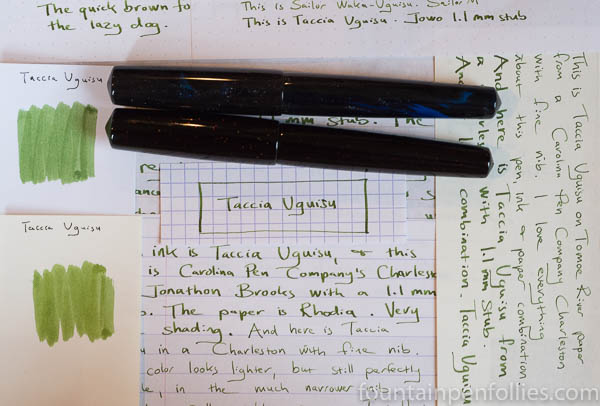 The quick brown fo
the lazy dog.
This is Sailor Waka-Uguisu. Sailor M
This is Taccia Uguisu. Jowo 1.1 mm stub
Taccia Uguisu
mm stub. The
Taccia Uguisu
Taccia Uguisu
ink is Taccia Uguisu, & this
is Carolina Pen Company's Charlest
Jonathon Brooks with a 1.1 mm
. The paper is Rhodia. Very
shading. And here is Taccia
in a Charleston with fine nib.
color looks lighter, but still perfectly
in the much narrower nib
This is Taccia Uguisu on Tomoe River paper
from a Carolina Pen Company Charleston
with fine nib. I love everything
about this pen, ink & paper combination.
And here is Taccia Uguisu from
with 1.1 mm stub.
combination. Taccia Uguisu
fountainpenfollies.com